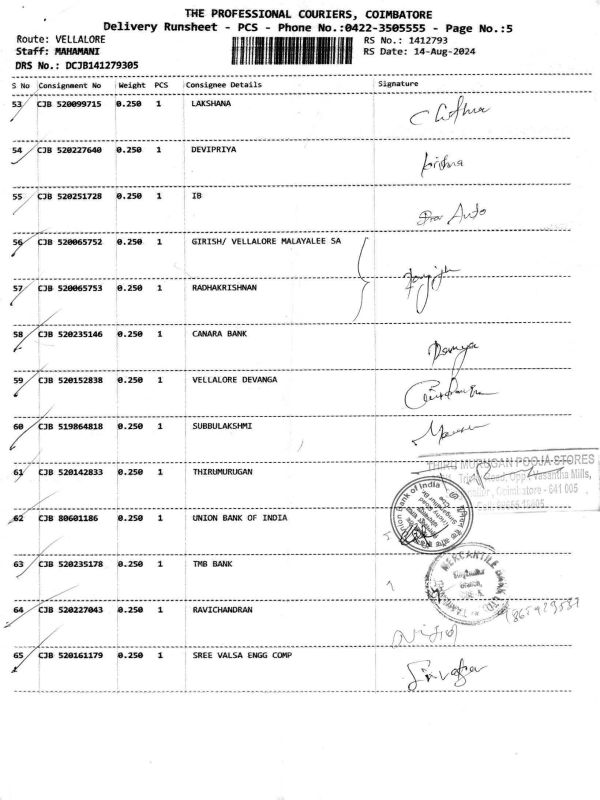 THE PROFESSIONAL COURIERS, COIMBATORE
Delivery Runsheet - PCS - Phone No.:0422-3505555 - Page No.:5
Route: VELLALORE RS No.: 1412793
Staff: MAHAMANI RS Date: 14-Aug-2024
DRS No.: DCJB141279305
S No Consignment No Weight PCS Consignee Details Signature
53 CJB 520099715 0.250 1 LAKSHANA
54 CJB 520227640 0.250 1 DEVIPRIYA Krishna
55 CJB 520251728 0.250 1 IB Auto
56 CJB 520065752 0.250 1 GIRISH/ VELLALORE MALAYALEE SA
57 CJB 520065753 0.250 1 RADHAKRISHNAN
58 CJB 520235146 0.250 1 CANARA BANK Ramya
59 CJB 520152838 0.250 1 VELLALORE DEVANGA
60 CJB 519864818 0.250 1 SUBBULAKSHMI
THIRU MURUGAN POOJA STORES
61 CJB 520142833 0.250 1 THIRUMURUGAN Road, Opp. Vasantha Mills,
Coimbatore - 641 005
Union Bank of India
62 CJB 80601186 0.250 1 UNION BANK OF INDIA
MERCANTILE BANK LTD
63 CJB 520235178 0.250 1 TMB BANK
64 CJB 520227043 0.250 1 RAVICHANDRAN
65 CJB 520161179 0.250 1 SREE VALSA ENGG COMP